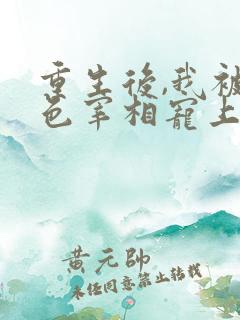 重生後,我被
色宰相寵上
黃元帥
未經同意禁止轉載